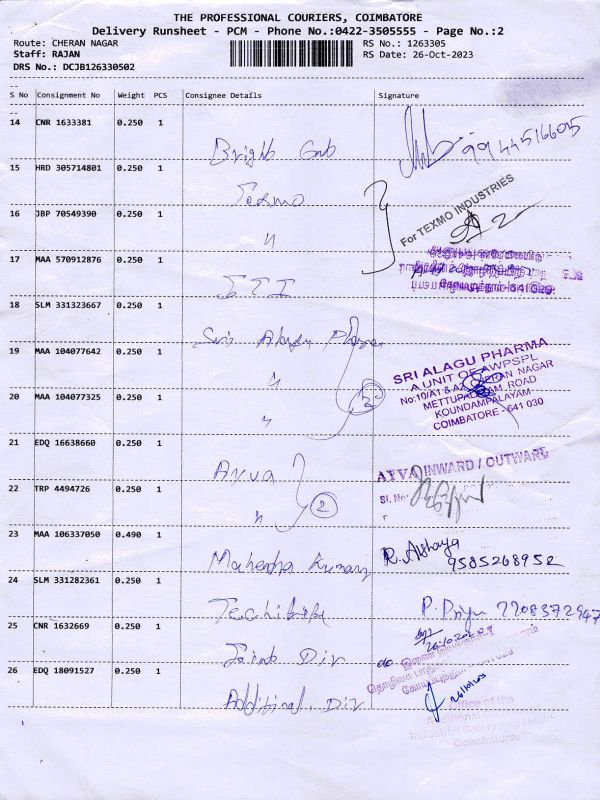 THE PROFESSIONAL COURIERS, COIMBATORE
Delivery Runsheet - PCM - Phone No.:0422-3505555 - Page No.:2
Route: CHERAN NAGAR RS No.: 1263305
Staff: RAJAN RS Date: 26-Oct-2023
DRS No.: DCJB126330502
S No Consignment No Weight PCS Consignee Details Signature
14 CNR 1633381 0.250 1
Bright
9944516605
15 HRD 305714801 0.250 1
Texmo
For TEXMO INDUSTRIES
16 JBP 70549390 0.250 1
"
17 MAA 570912876 0.250 1
ITI
18 SLM 331323667 0.250 1
Sri Alagu Pharma
19 MAA 104077642 0.250 1
"
SRI ALAGU PHARMA
A UNIT OF AWPSPL
No:10/A1 & A2, CHERAN NAGAR
METTUPALAYAM ROAD
KOUNDAMPALAYAM
COIMBATORE - 641 030
20 MAA 104077325 0.250 1
"
3
21 EDQ 16638660 0.250 1
Arva
INWARD / OUTWARD
Sl. No:
22 TRP 4494726 0.250 1
"
2
23 MAA 106337050 0.490 1
Mahendra Kumar
R. Akshaya
9585268952
24 SLM 331282361 0.250 1
P. Priya 7708372947
25 CNR 1632669 0.250 1
Joint Div
26 EDQ 18091527 0.250 1
Additional. Div
Office of the
Additional
Industrial Safety and Health
Coimbatore